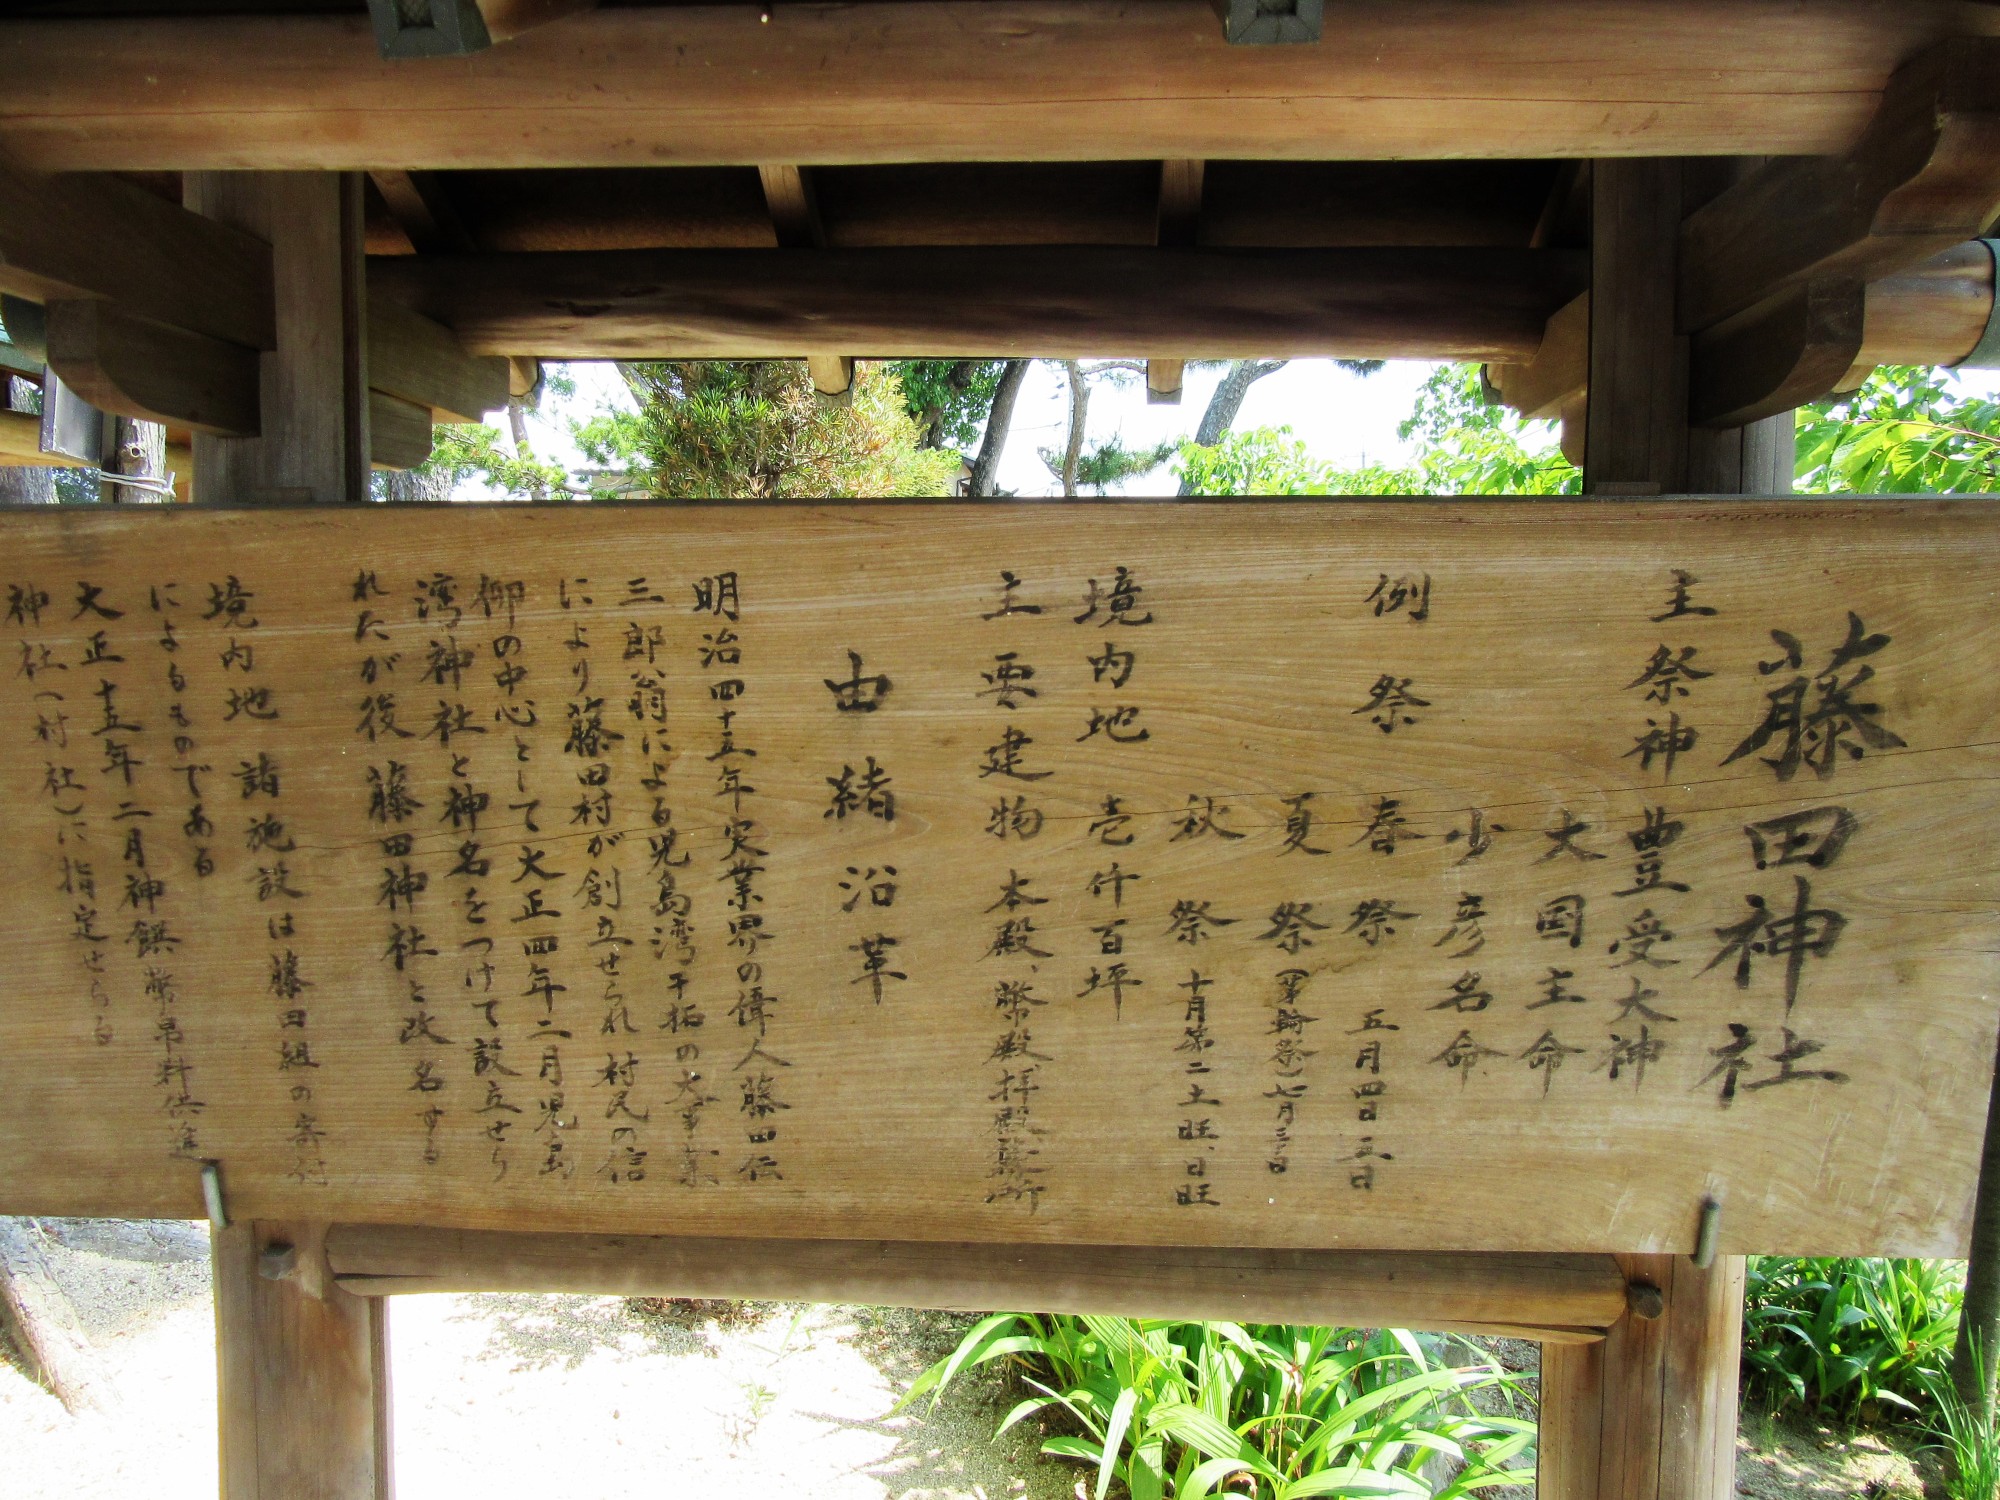 藤田神社
主祭神 豊受大神
大国主命
少彦名命
例祭 春祭 五月四日五日
夏祭(茅輪祭)七月三十日
秋祭 十月第二土旺、日旺
境内地 壱仟百坪
主要建物 本殿、幣殿、拝殿
由緒沿革
明治四十五年実業界の偉人藤田伝
三郎公翁による児島湾干拓の大事業
により藤田村が創立せられ村民の信
仰の中心として大正四年二月児島
湾神社と神名をつけて設立せら
れたが後藤田神社と改名する
境内地 諸施設は藤田組の寄付
によるものである
大正十五年二月神饌幣帛料供進
神社(村社)に指定せらる